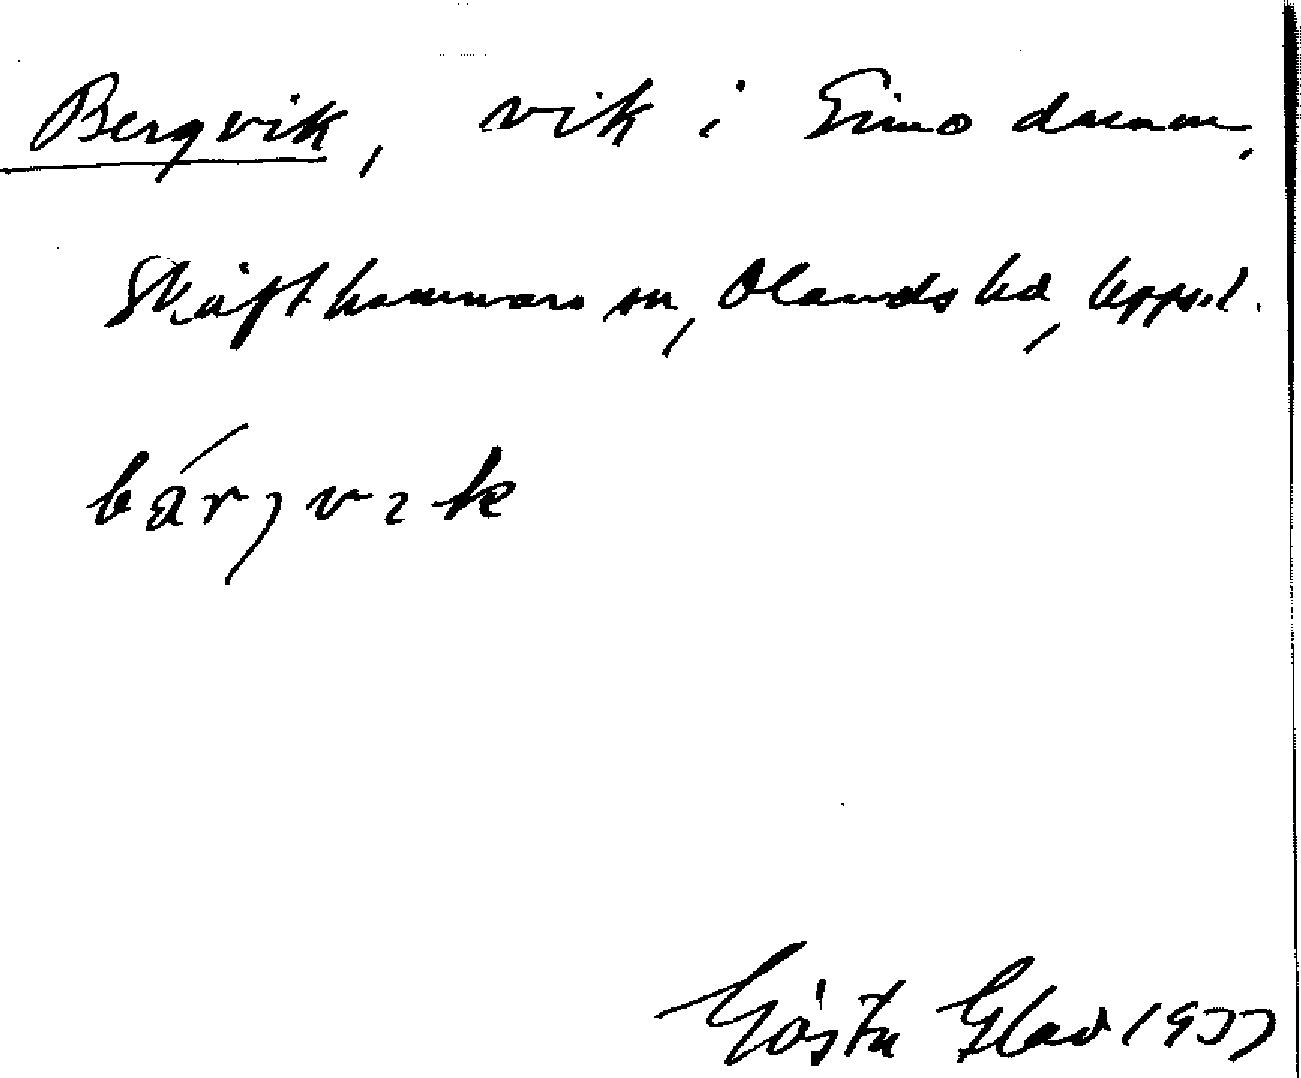 Bergvik, vik i Gimo damm,
Skäfthammars sn, Olands hd, Uppsl.
bárjvik
Gösta Glad 1977